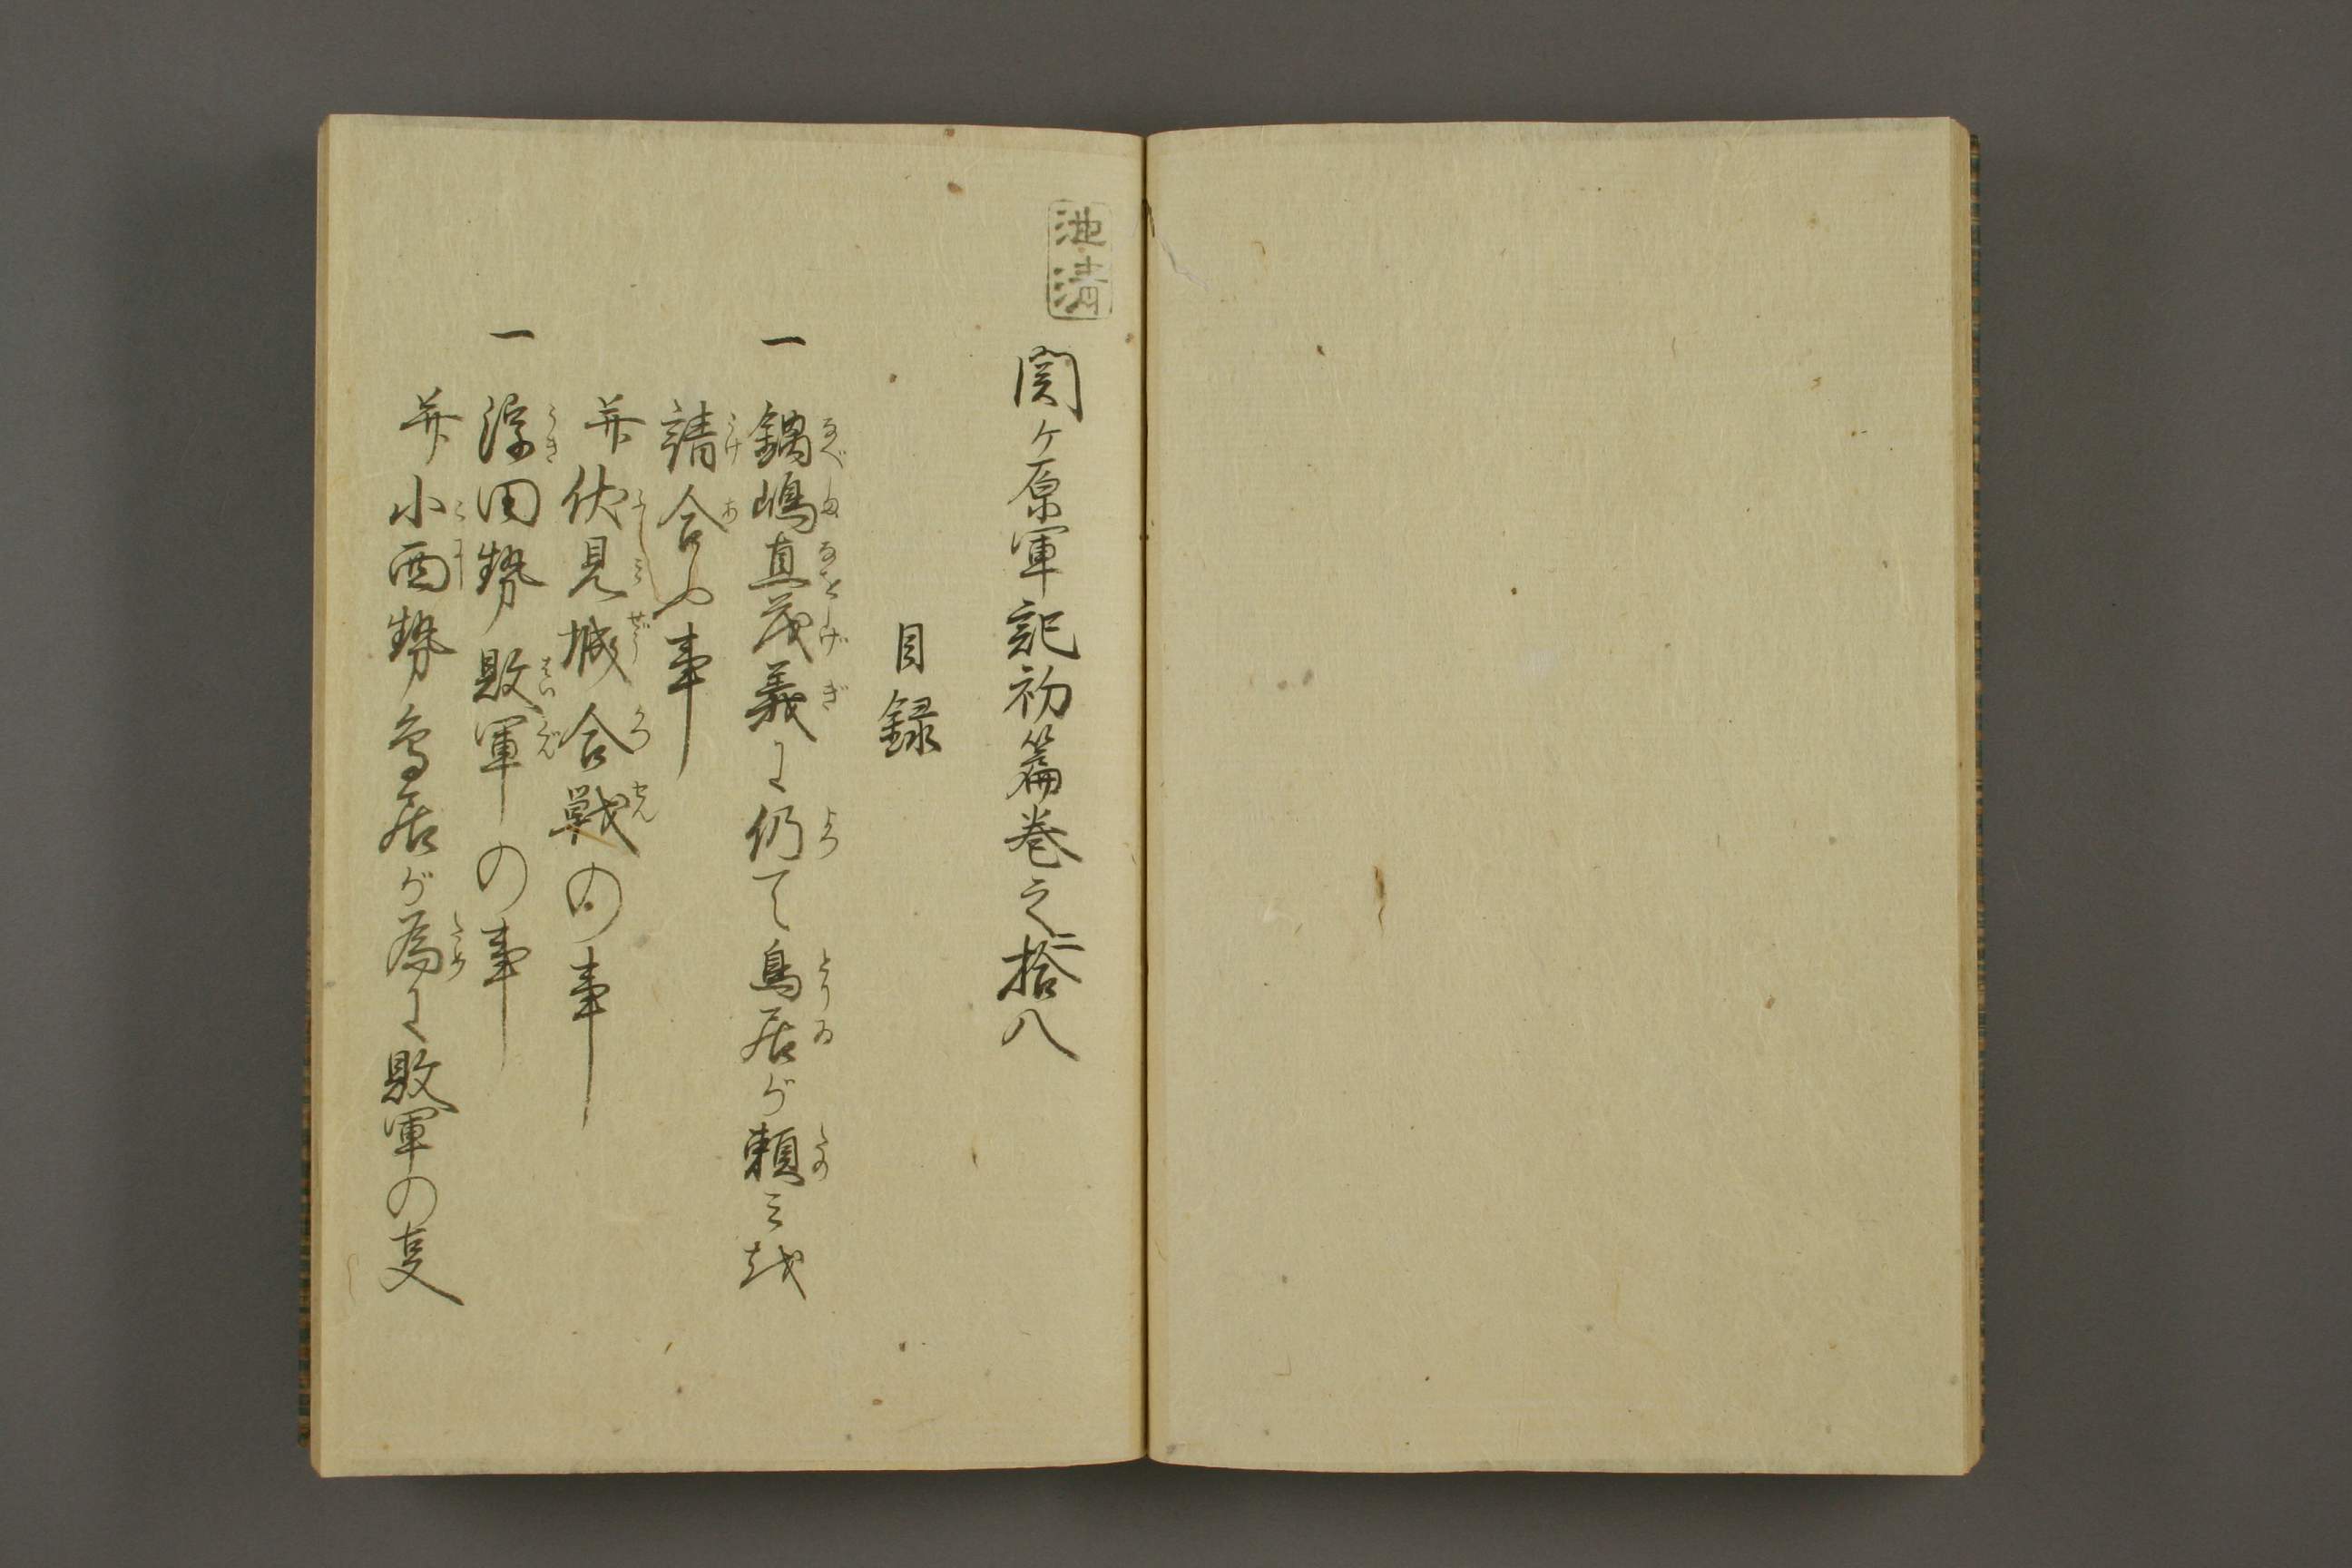 池清
関ヶ原軍記初篇巻之二拾八
目録
一 鍋嶋直茂義に仍て鳥居が頼ミを
請合ふ事
并伏見城合戦の事
一 浮田勢敗軍の事
并小西勢鳥居が為に敗軍の叓